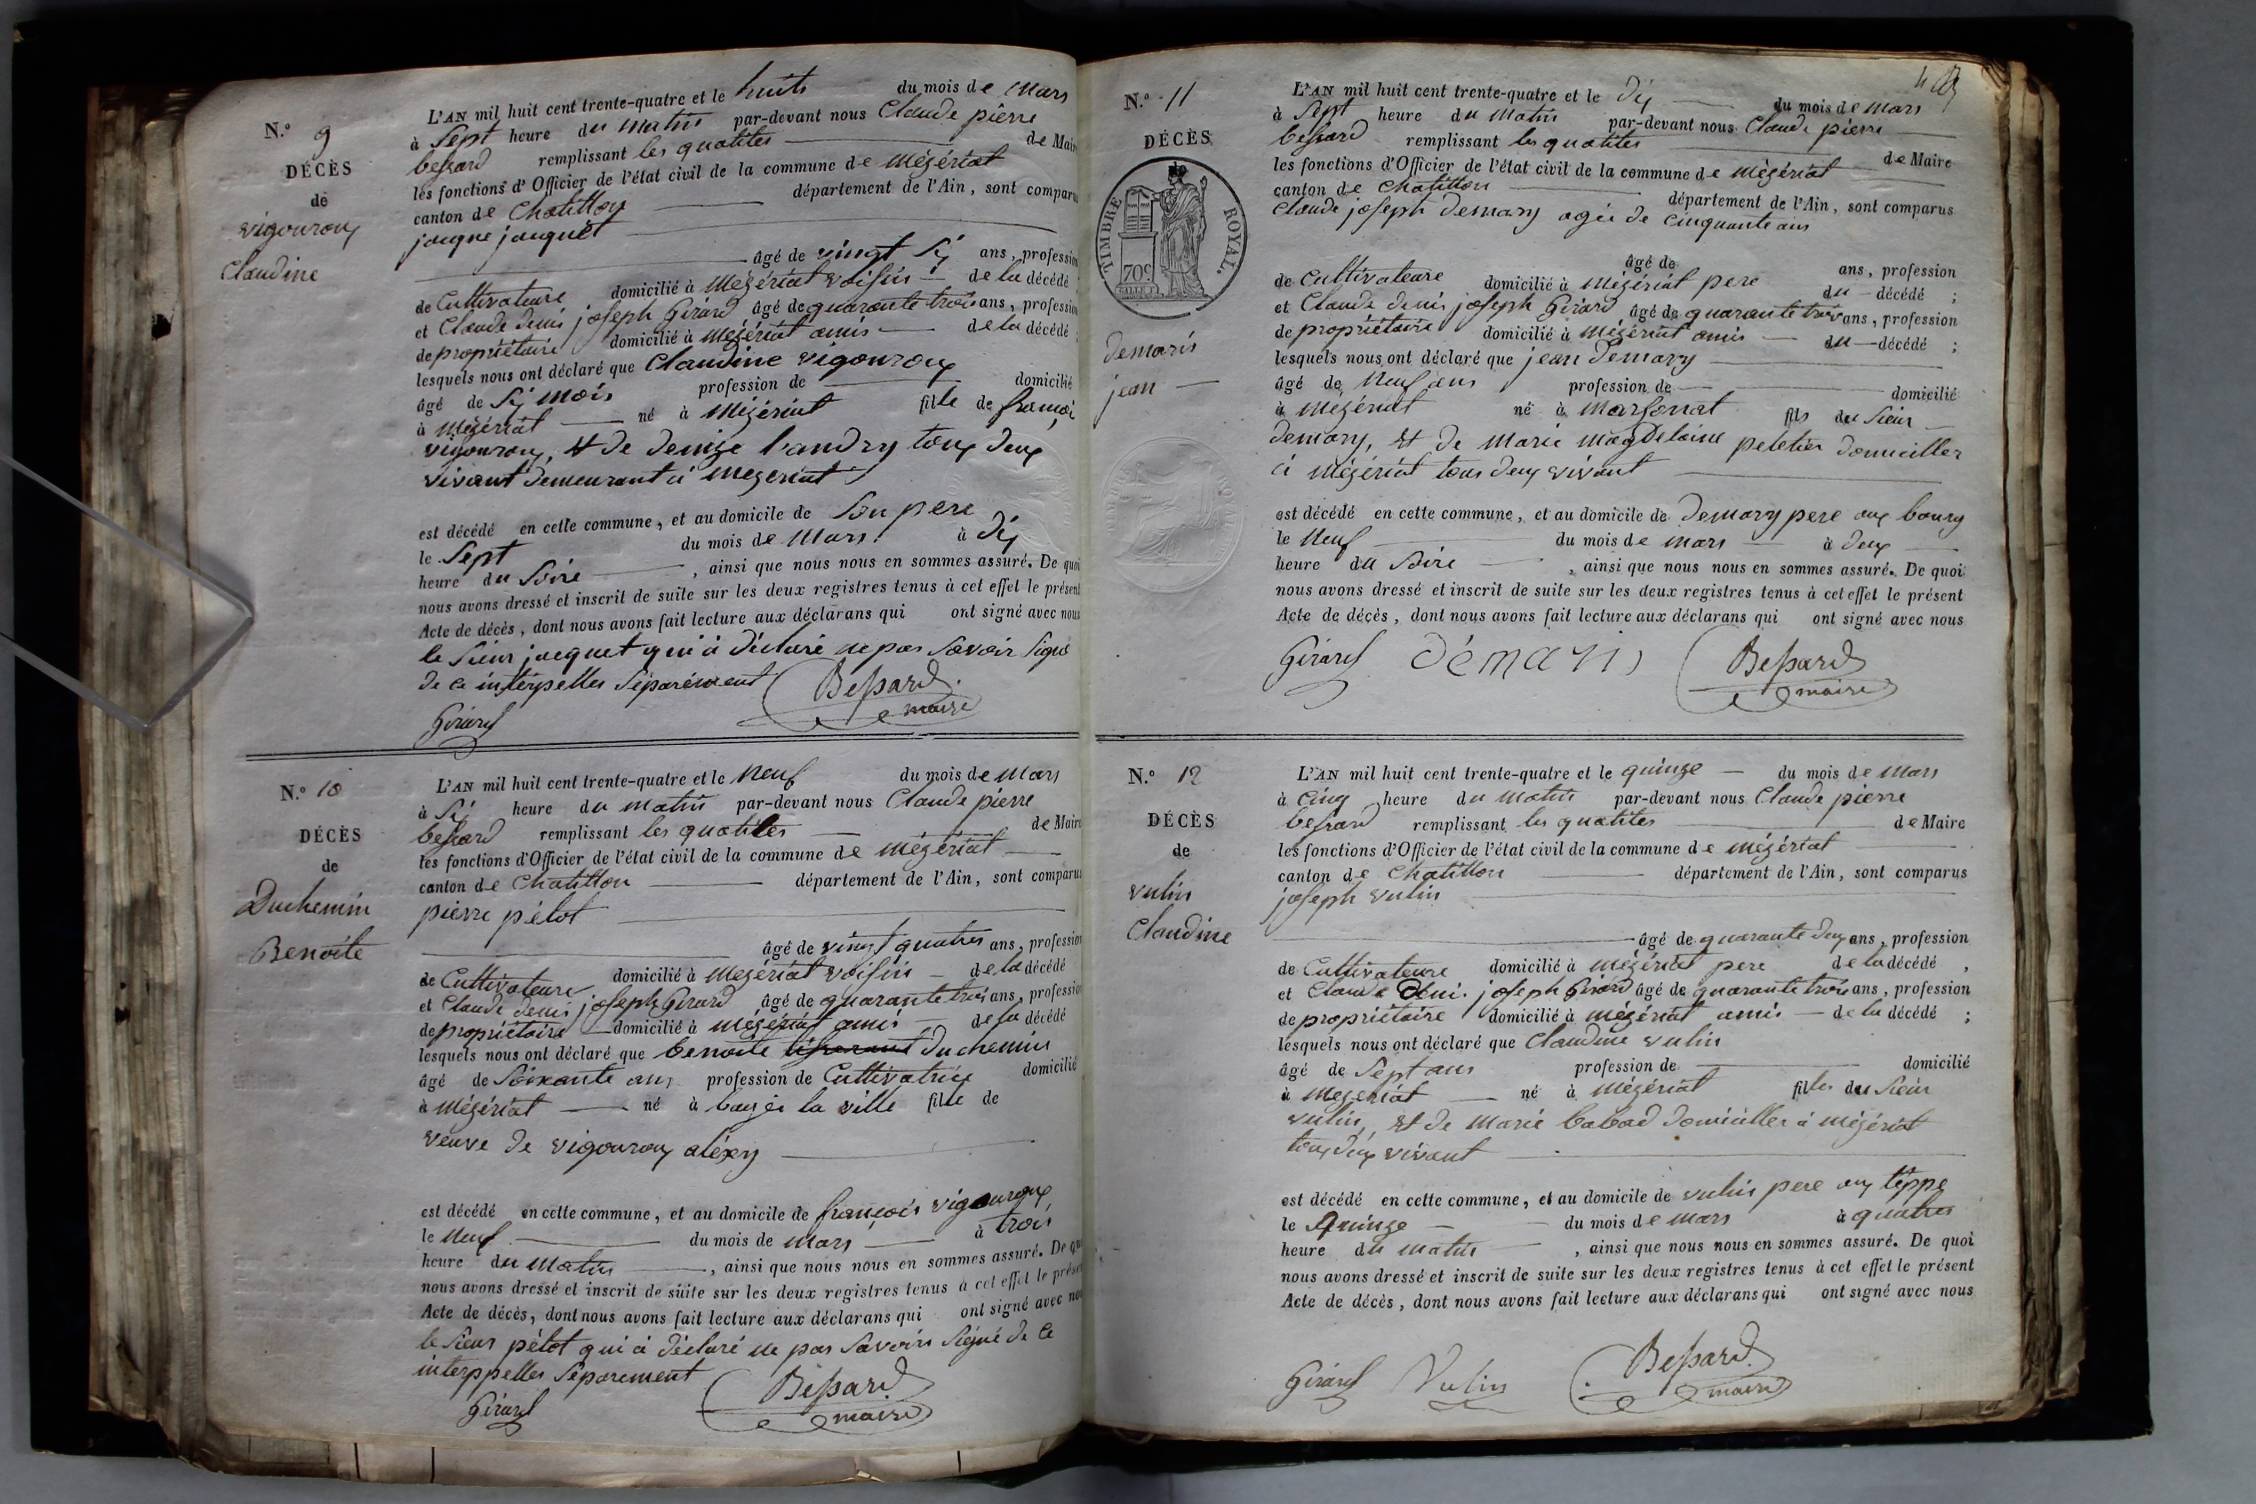 N.° 9
DÉCÈS
de
vigouroux
Claudine
L'AN mil huit cent trente-quatre et le huits du mois de Mars
à Sept heure du matin par-devant nous Claude pierre
bessard remplissant les qualités de Maire
les fonctions d'Officier de l'état civil de la commune de Mézériat
canton de Chatillon département de l'Ain, sont comparus
jaque jaquet
âgé de vingt Six ans, profession
de Cultivateure domicilié à Mézériat voisin de la décédé
et Claude denis joseph Girard âgé de quarante trois ans, profession
de propriétaire domicilié à Mézériat amis de la décédé ;
lesquels nous ont déclaré que Claudine vigouroux
âgé de Six mois profession de domicilié
à Mézériat né à Mézériat fille de françois
vigouroux, et de denize landry toux deux
vivant demeurant à mezeriat
est décédé en cette commune, et au domicile de Son pere
le Sept du mois de Mars à dix
heure du Soire , ainsi que nous nous en sommes assuré. De quoi
nous avons dressé et inscrit de suite sur les deux registres tenus à cet effet le présent
Acte de décès, dont nous avons fait lecture aux déclarans qui ont signé avec nous
le Sieur jacquet qui à déclaré ne pas Savoir Signé
de ce interpelles Séparément Bessard
maire
Girard
N.° 10
DÉCÈS
de
Duchemin
Benoite
L'AN mil huit cent trente-quatre et le Neuf du mois de Mars
à Six heure du matin par-devant nous Claude pierre
bessard remplissant les qualités de Maire
les fonctions d'Officier de l'état civil de la commune de Mézériat
canton de Chatillon département de l'Ain, sont comparus
pierre pélot
âgé de vingt quatres ans, profession
de Cultivateure domicilié à Mezériat voisin de la décédé
et Claude denis joseph Girard âgé de quarante trois ans, profession
de propriétaire domicilié à Mézériat amis de la décédé
lesquels nous ont déclaré que benoite duchemin
âgé de Soixante ans profession de Cultivatrix domicilié
à Mézériat né à baugés la ville fille de
veuve de vigouroux aléxy
est décédé en cette commune, et au domicile de françois vigouroux
le Neuf du mois de mars à trois
heure du Matin , ainsi que nous nous en sommes assuré. De quoi
nous avons dressé et inscrit de suite sur les deux registres tenus à cet effet le présent
Acte de décès, dont nous avons fait lecture aux déclarans qui ont signé avec nous
le Sieur pélot qui à déclaré ne pas Savoir Signé de ce
interppelles Séparement Bessard
maire
Girard
N.° 11
DÉCÈS
de
TIMBRE ROYAL.
70c
demaris
jean
L'AN mil huit cent trente-quatre et le dix du mois de Mars
à Sept heure du Matin par-devant nous Claude pierre
bessard remplissant les qualités de Maire
les fonctions d'Officier de l'état civil de la commune de Mézériat
canton de Chatillon département de l'Ain, sont comparus
Claude joseph demary agée de cinquante ans
âgé de ans, profession
de Cultivateure domicilié à Mézériat pere du décédé ;
et Claude denis joseph Girard âgé de quarante trois ans, profession
de propriétaire domicilié à Mézériat amis du décédé ;
lesquels nous ont déclaré que jean demary
âgé de Neuf ans profession de domicilié
à Mézériat né à Marsonat fils du Sieur
demary, et de Marie magdelaine peletier domiciller
à Mézériat tous deux vivant
est décédé en cette commune, et au domicile de demary pere aux bourg
le Neuf du mois de mars à deux
heure du Soire , ainsi que nous nous en sommes assuré. De quoi
nous avons dressé et inscrit de suite sur les deux registres tenus à cet effet le présent
Acte de décès, dont nous avons fait lecture aux déclarans qui ont signé avec nous
Girard démaris Bessard
maire
N.° 12
DÉCÈS
de
vulin
Claudine
L'AN mil huit cent trente-quatre et le quinze du mois de Mars
à Cinq heure du matin par-devant nous Claude pierre
bessard remplissant les qualités de Maire
les fonctions d'Officier de l'état civil de la commune de Mézériat
canton de Chatillon département de l'Ain, sont comparus
joseph vulin
âgé de quarante deux ans, profession
de Cultivateure domicilié à mézériat pere de la décédé ,
et Claude denis joseph Girard âgé de quarante trois ans, profession
de propriétaire domicilié à mézériat amis de la décédé ;
lesquels nous ont déclaré que Claudine vulin
âgé de Sept ans profession de domicilié
à Mezeriat né à mézériat filles du Sieur
vulin, et de Marie babad domiciller à mézériat
tous deux vivant
est décédé en cette commune, et au domicile de vulin pere aux téppe
le Quinze du mois de mars à quatres
heure du matin , ainsi que nous nous en sommes assuré. De quoi
nous avons dressé et inscrit de suite sur les deux registres tenus à cet effet le présent
Acte de décès, dont nous avons fait lecture aux déclarans qui ont signé avec nous
Girard Vulin Bessard
maire